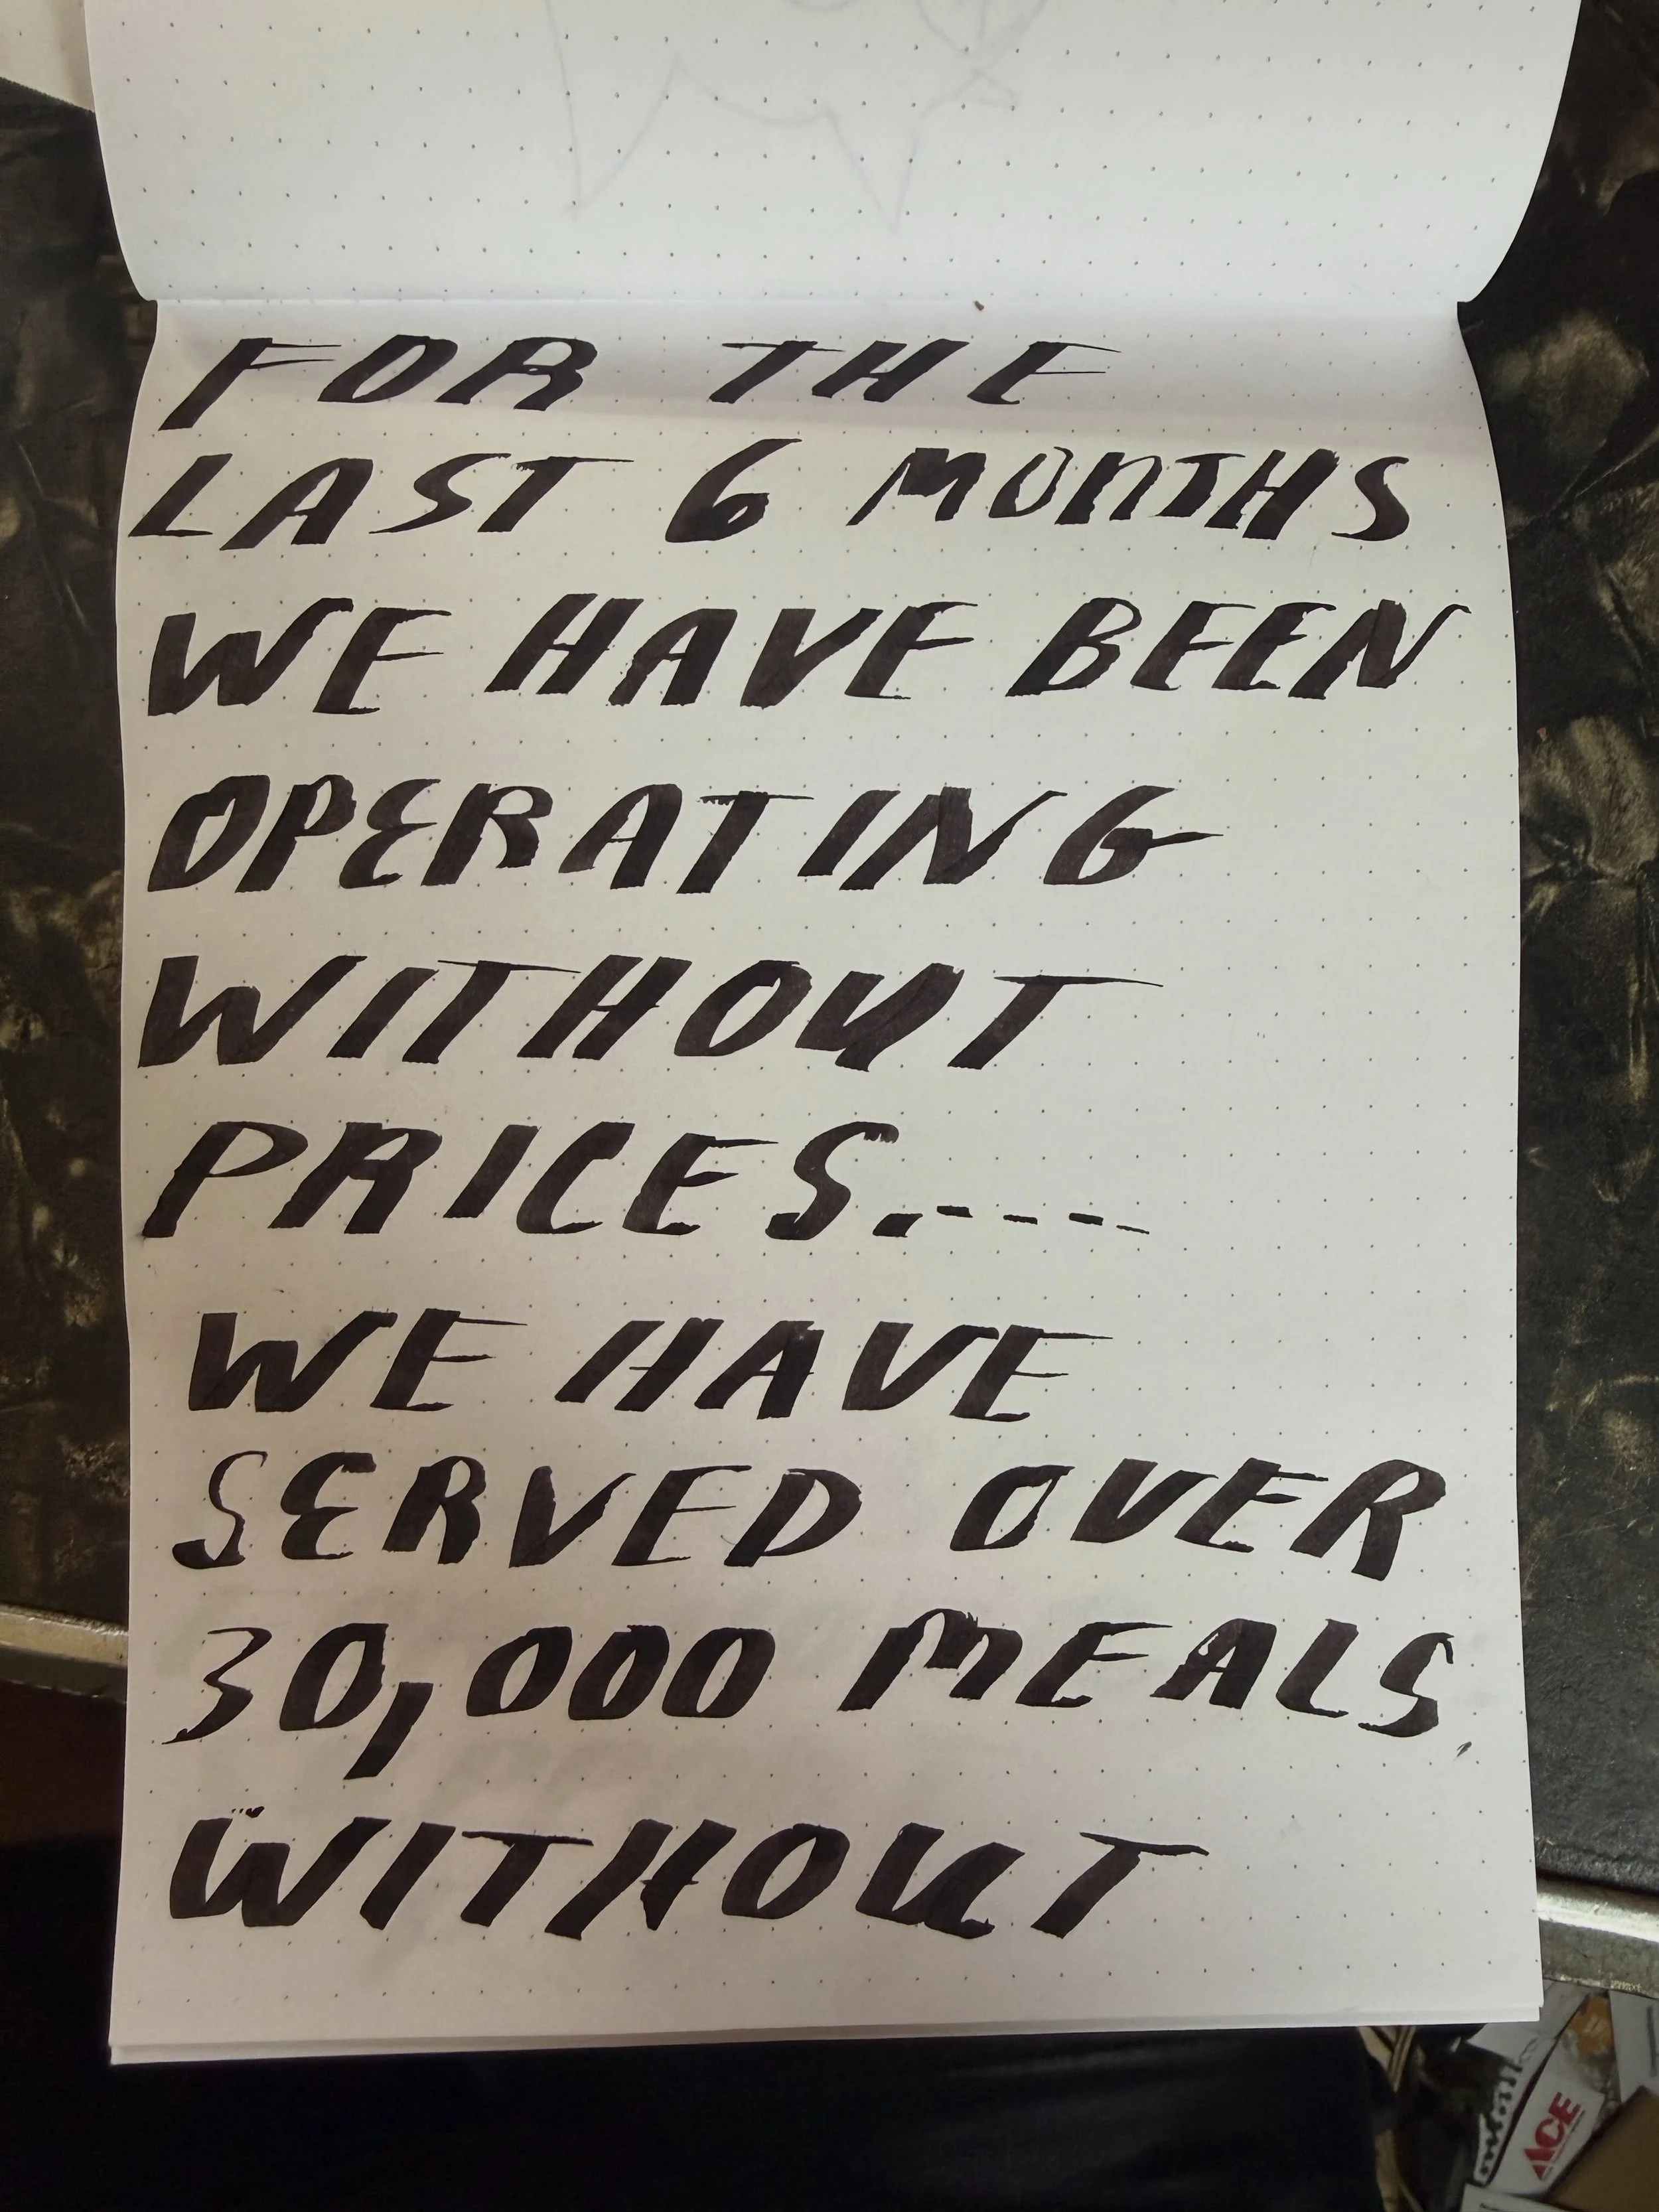 FOR THE
LAST 6 MONTHS
WE HAVE BEEN
OPERATING
WITHOUT
PRICES.----
WE HAVE
SERVED OVER
30,000 MEALS
WITHOUT
ACE